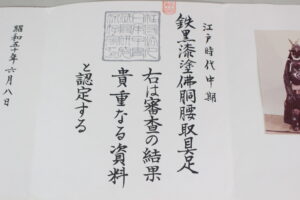 江戸時代中期
鉄黒漆塗佛胴腰取具足
右は審査の結果
貴重なる資料
と認定する
昭和五十年六月八日